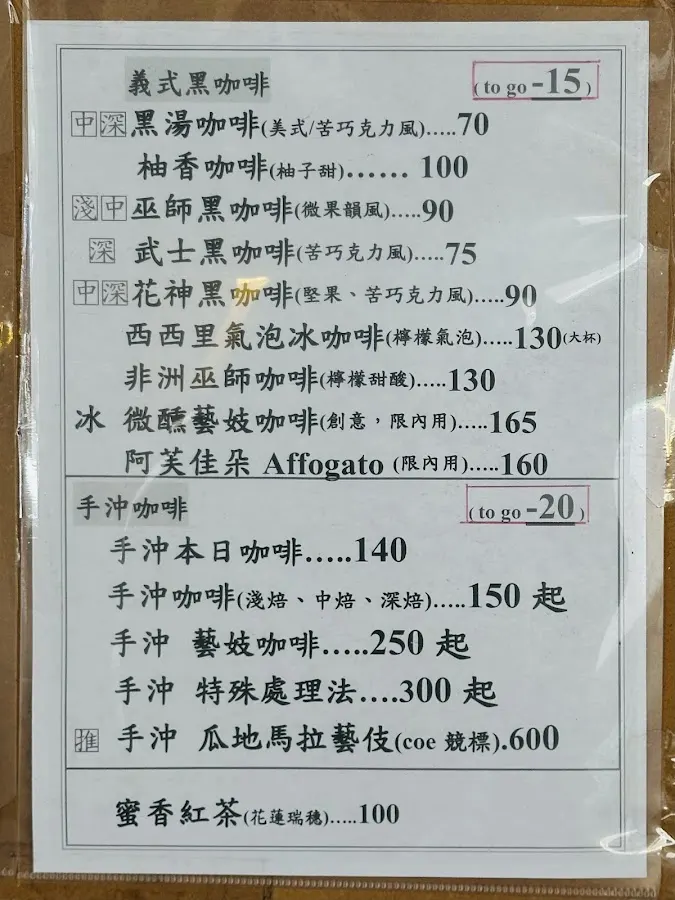 義式黑咖啡 ( to go -15 )
中深黑湯咖啡(美式/苦巧克力風).....70
柚香咖啡(柚子甜)...... 100
淺中巫師黑咖啡(微果韻風).....90
深 武士黑咖啡(苦巧克力風).....75
中深花神黑咖啡(堅果、苦巧克力風).....90
西西里氣泡冰咖啡(檸檬氣泡).....130(大杯)
非洲巫師咖啡(檸檬甜酸).....130
冰 微醺藝妓咖啡(創意，限內用).....165
阿芙佳朵 Affogato (限內用).....160
手沖咖啡 ( to go -20 )
手沖本日咖啡.....140
手沖咖啡(淺焙、中焙、深焙).....150 起
手沖 藝妓咖啡.....250 起
手沖 特殊處理法....300 起
推 手沖 瓜地馬拉藝伎(coe 競標).600
蜜香紅茶(花蓮瑞穗).....100